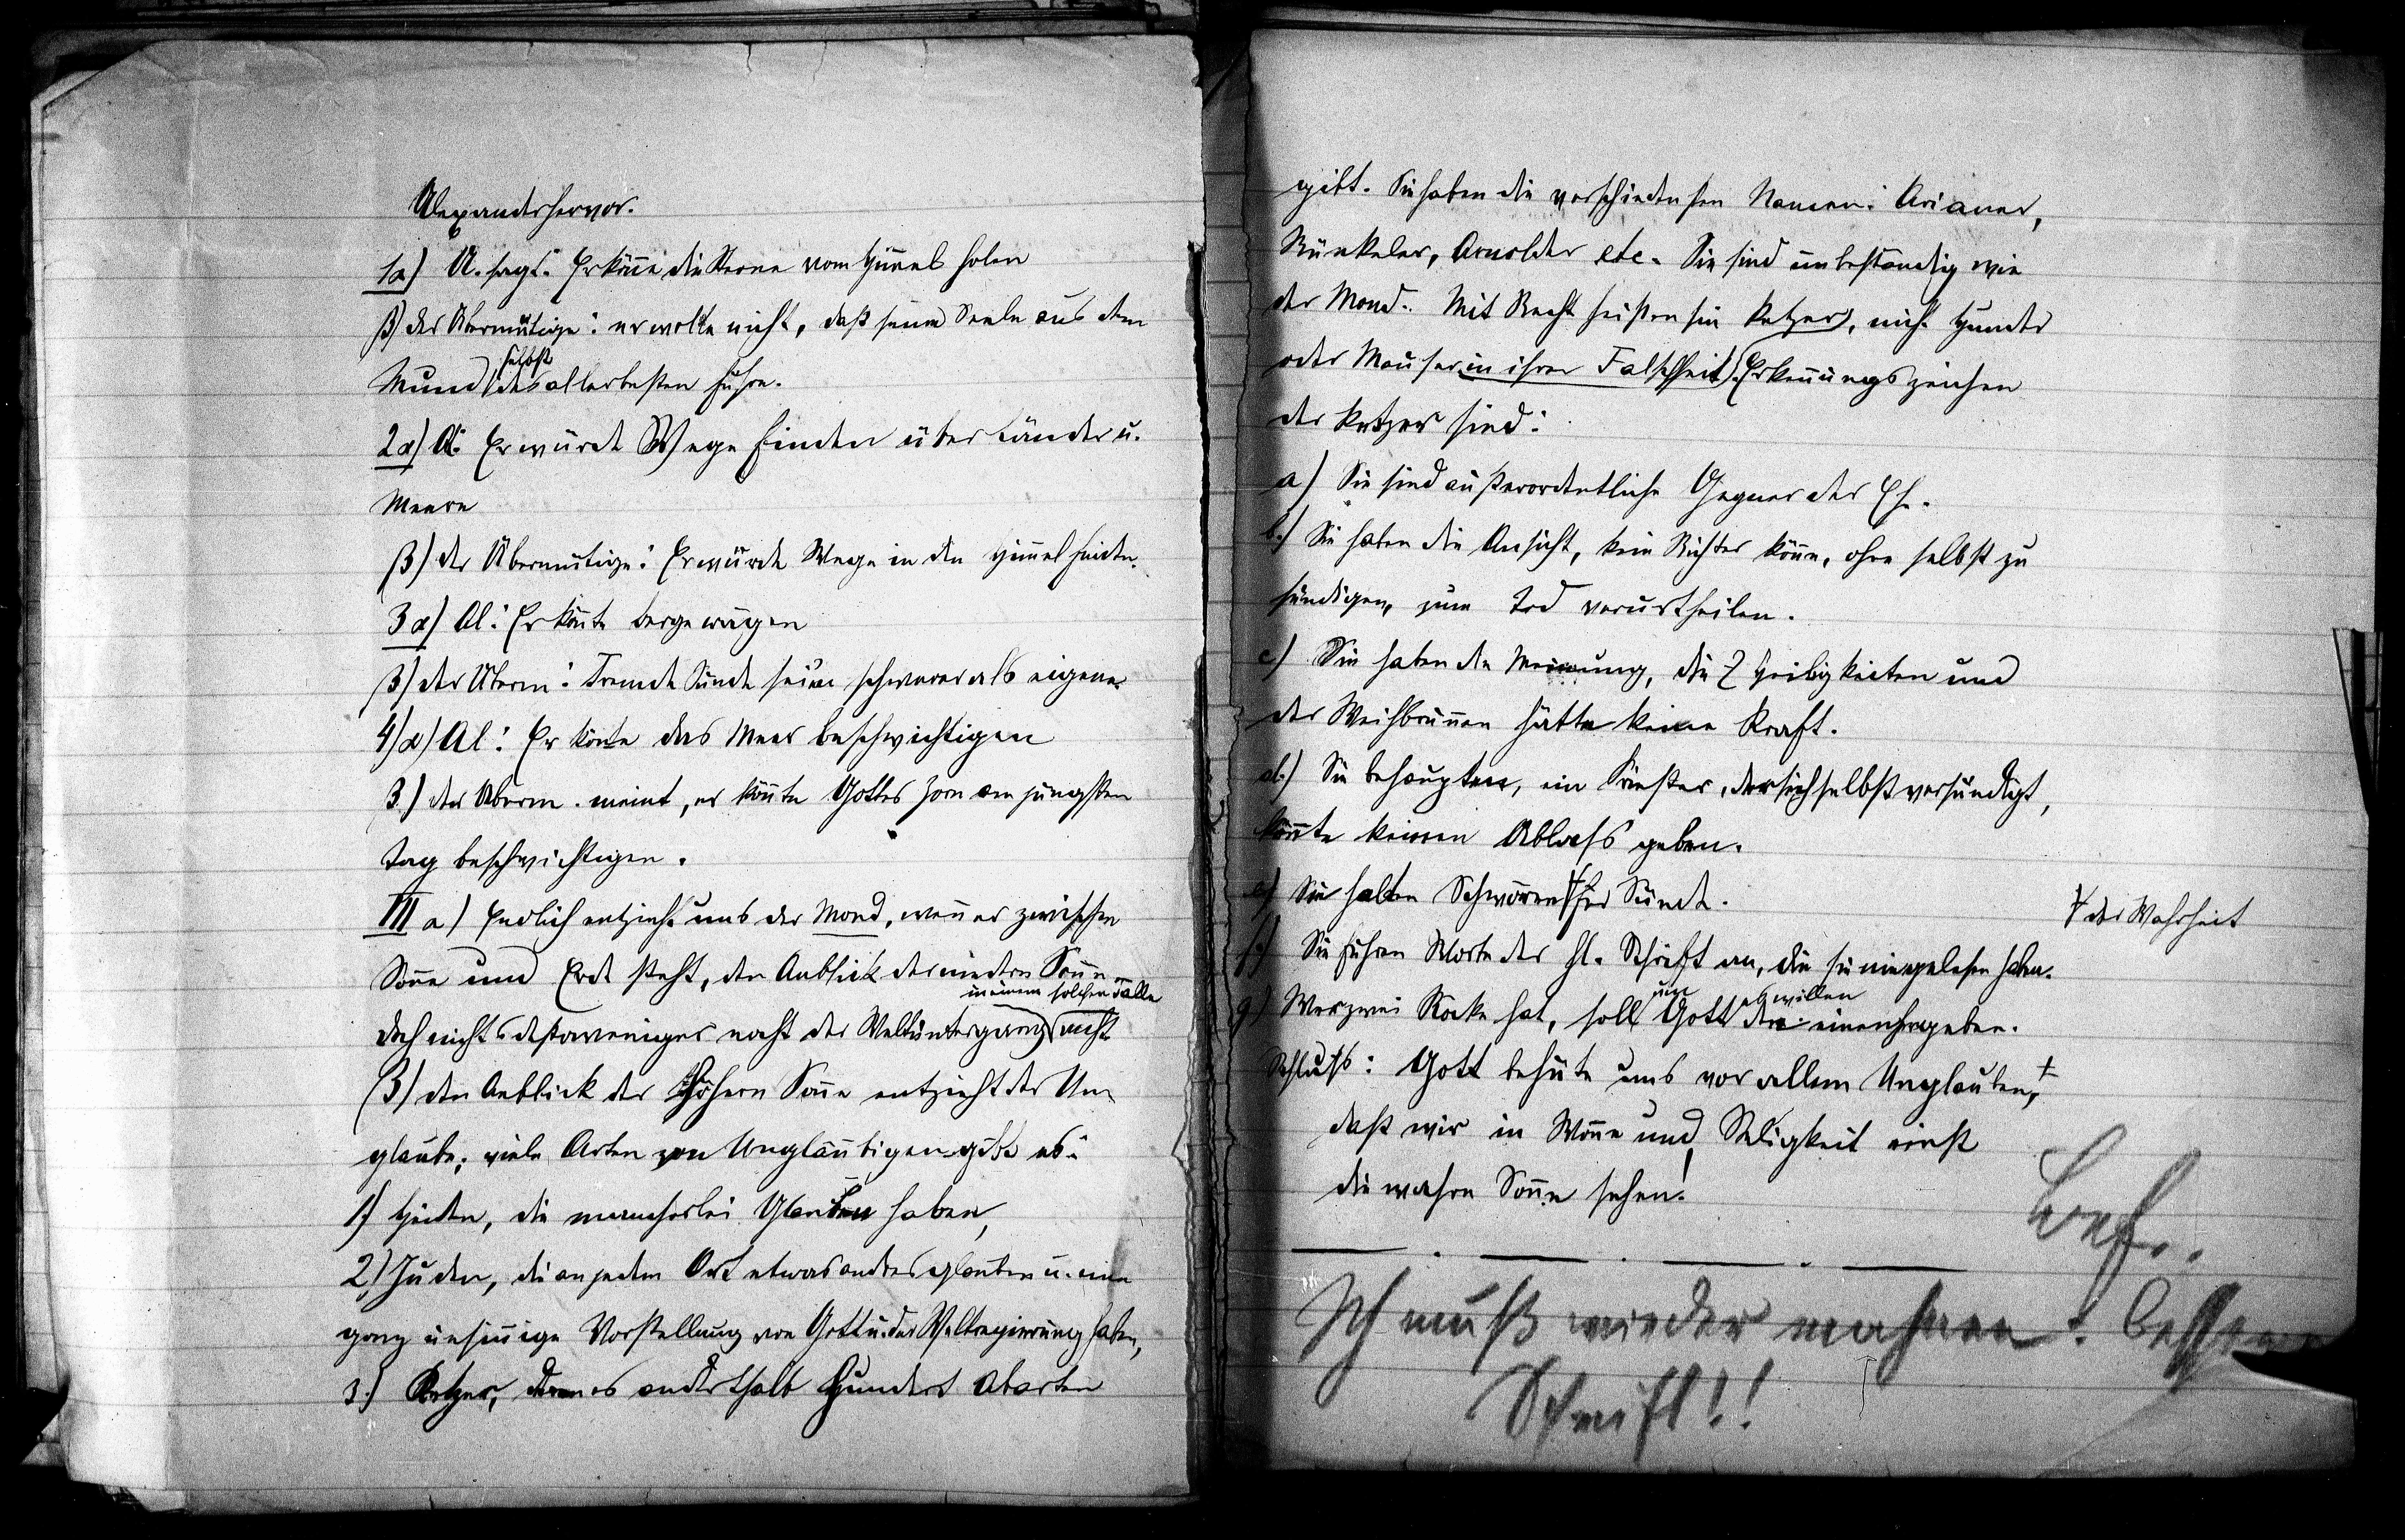 Alexanders hervor.
1α) A. sagt: Er könne die Sterne vom Himmel holen
β) der Übermütige: er wollte nicht, daß seine Seele aus dem
selbst
Mund des allerbesten führe.
2α) A: Er würde Wege finden über Länder u.
Meere
β) der Übermütige: Er würde Wege in den Himmel finden.
3α) Al: Er könnte Berge wägen
β) der Überm: Fremde Sünde seien schwerer als eigene
4)α) Al: Er könnte das Meer beschwichtigen
β.) der Überm. meint, er könnte Gottes Zorn am jüngsten
Tag beschwichtigen.
III a) Endlich entzieht uns der Mond, wenn er zwischen
Sonne und Erde steht, den Anblick der niedern Sonne
in einem solchen Falle
doch nichtsdestoweniger naht der Weltuntergang nicht
β) den Anblick der höhern Sonne entzieht der Un-
glaube; viele Arten von Ungläubigen gibt es:
1.) Heiden, die mancherlei Glauben haben,
2.) Juden, die an jedem Ort etwas andres glauben u. eine
ganz unsinnige Vorstellung von Gott u. der Weltregierung haben,
3.) Ketzer, deren es anderthalb Hundert Abarten
gibt. Sie haben die verschiedensten Namen: Arianer,
Runkeler, Arnolder etc. Sie sind unbeständig wie
der Mond. Mit Recht heißen sie Ketzer, nicht Hunder
oder Mauser in ihrer Falschheit). Erkennungszeichen
der Ketzer sind:
a) Sie sind außerordentliche Gegner der Ehe.
b.) Sie haben die Ansicht, kein Richter könne, ohne selbst zu
sündigen, zum Tod verurtheilen.
c) Sie haben die Meinung, die 7 Heiligkeiten und
der Weihbrunnen hätte keine Kraft.
d.) Sie behaupten, ein Priester, der sich selbst versündigt,
könnte keinen Ablass geben.
e) Sie halten Schwören † für Sünde.
† der Wahrheit
f.) Sie führen Worte der hl. Schrift an, die sie nie gelesen haben.
um willen
g.) Wer zwei Röcke hat, soll Gott den einen hergeben.
Schluß: Gott behüte uns vor allem Unglauben, †
daß wir in Wonne und Seligkeit einst
die wahre Sonne sehen!
Ich muß wieder mahnen: bessere
Schrift!!